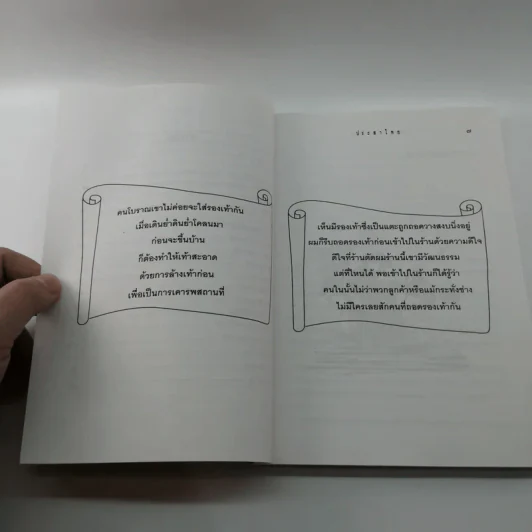 คนโบราณเขาไม่ค่อยจะใส่รองเท้ากัน
เมื่อเดินย่ำดินย่ำโคลนมา
ก่อนจะขึ้นบ้าน
ก็ต้องทำให้เท้าสะอาด
ด้วยการล้างเท้าก่อน
เพื่อเป็นการเคารพสถานที่
ประชาไทย
เห็นมีรองเท้าซึ่งเป็นแตะถูกถอดวางสงบนิ่งอยู่
ผมก็รีบถอดรองเท้าก่อนเข้าไปในร้านด้วยความดีใจ
ดีใจที่ร้านตัดผมร้านนี้เขามีวัฒนธรรม
แต่ที่ไหนได้ พอเข้าไปในร้านก็ได้รู้ว่า
คนในนั้นไม่ว่าพวกลูกค้าหรือแม้กระทั่งช่าง
ไม่มีใครเลยสักคนที่ถอดรองเท้ากัน